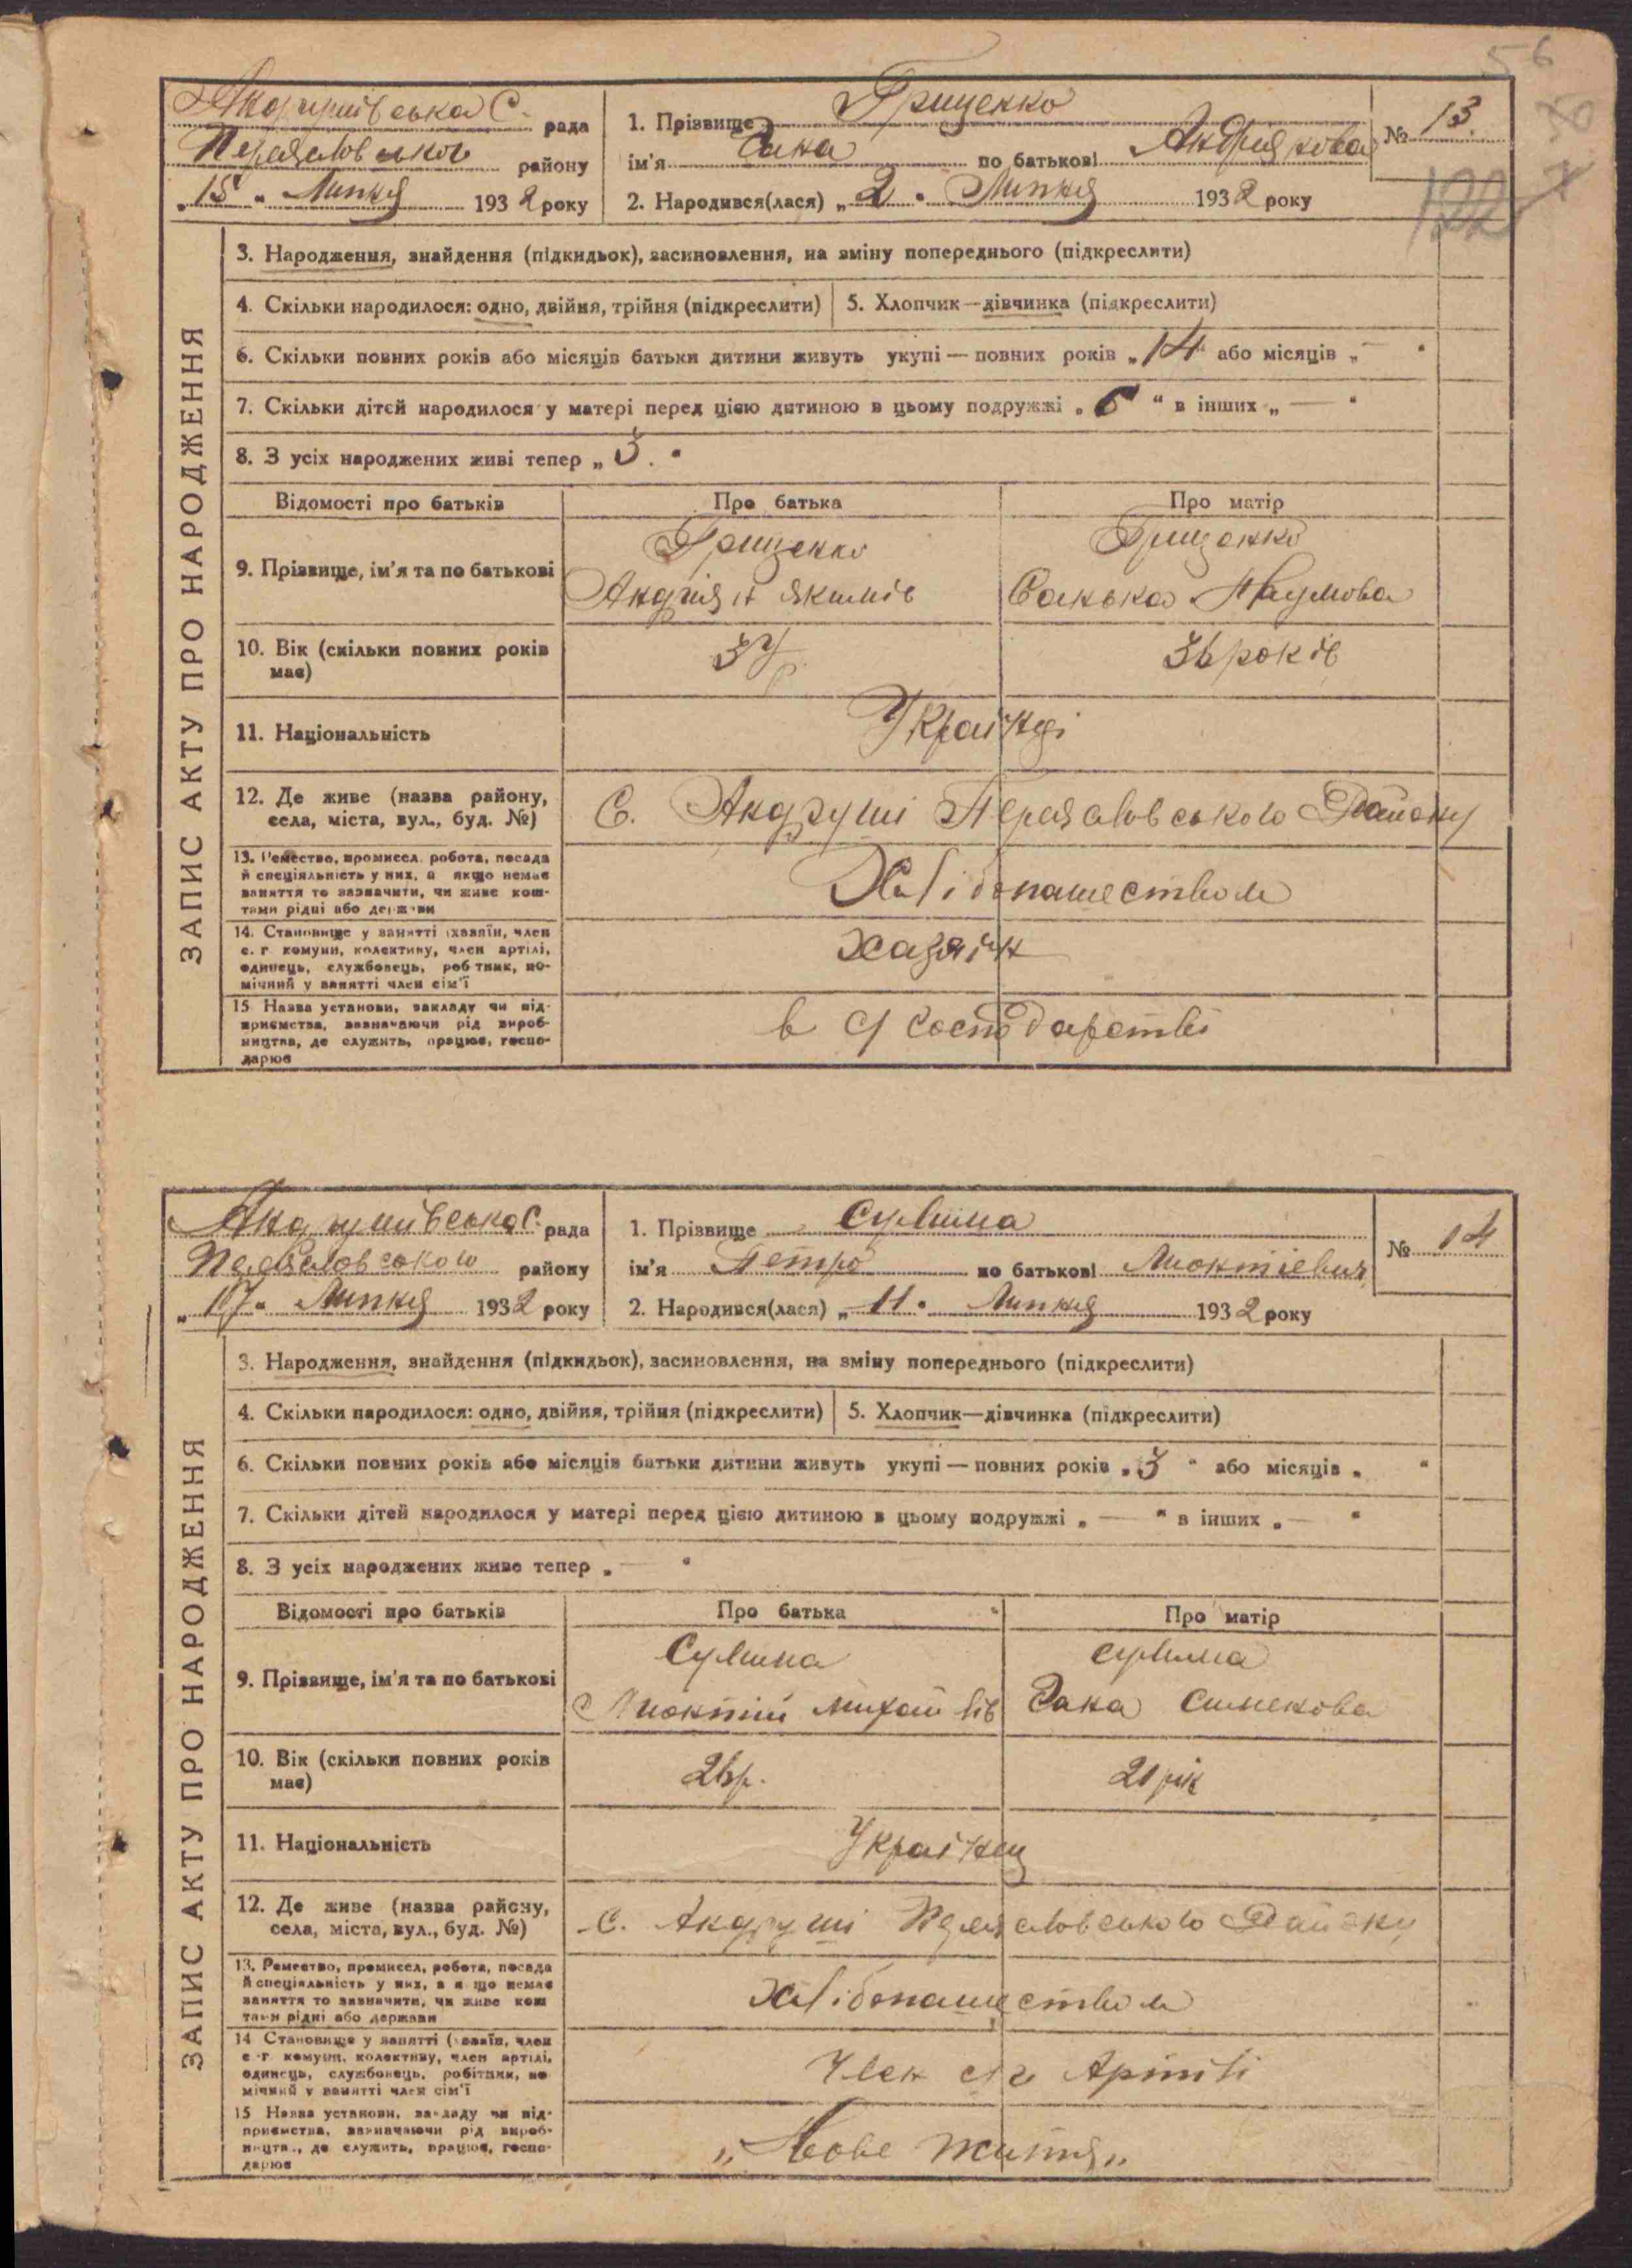 56
Андрушівська С. рада
Переяловського району
„15" Липня 1932 року
1. Прізвище Грищенко
ім'я Ганна по батькові Андріянова
№ 13.
2. Народився(лася) „2" Липня 1932 року
122
ЗАПИС АКТУ ПРО НАРОДЖЕННЯ
3. Народження, знайдення (підкидьок), засиновлення, на зміну попереднього (підкреслити)
4. Скільки народилося: одно, двійня, трійня (підкреслити) 5. Хлопчик—дівчинка (підкреслити)
6. Скільки повних років або місяців батьки дитини живуть укупі — повних років „14" або місяців „—"
7. Скільки дітей народилося у матері перед цією дитиною в цьому подружжі „6" в інших „—"
8. З усіх народжених живі тепер „3."
Відомості про батьків Про батька Про матір
9. Прізвище, ім'я та по батькові
Грищенко Грищенко
Андріян Якимів Санька Наумова
10. Вік (скільки повних років має)
36 років
11. Національність Українці
12. Де живе (назва району, села, міста, вул., буд. №)
С. Андруші Переяловського Району
13. Ремество, промисел, робота, посада
й спеціяльність у них, а якщо немає
заняття то зазначити, чи живе кош-
тами рідні або держави
Хлібопашеством
14. Становище у занятті (хазяїн, член
с. г. комуни, колективу, член артілі,
одинець, службовець, робітник, по-
мічний у занятті член сім'ї
хазяїн
15 Назва установи, закладу чи під-
приємства, зазначаючи рід вироб-
ництва, де служить, працює, госпо-
дарює
в с/господарстві
Андрушівська С. рада
Переяловського району
„17" Липня 1932 року
1. Прізвище Сулима
ім'я Петро по батькові Лиоктіевич
№ 14
2. Народився(лася) „11" Липня 1932 року
ЗАПИС АКТУ ПРО НАРОДЖЕННЯ
3. Народження, знайдення (підкидьок), засиновлення, на зміну попереднього (підкреслити)
4. Скільки народилося: одно, двійня, трійня (підкреслити) 5. Хлопчик—дівчинка (підкреслити)
6. Скільки повних років або місяців батьки дитини живуть укупі — повних років „3" або місяців „ "
7. Скільки дітей народилося у матері перед цією дитиною в цьому подружжі „—" в інших „—"
8. З усіх народжених живе тепер „—"
Відомості про батьків Про батька Про матір
9. Прізвище, ім'я та по батькові
Сулима Сулима
Лиоктій Михайлів Гана
10. Вік (скільки повних років має)
26р. 21 рік
11. Національність Українц
12. Де живе (назва району, села, міста, вул., буд. №)
С. Андруші Переяловського Району
13. Ремество, промисел, робота, посада
й спеціяльність у них, а якщо немає
заняття то зазначити, чи живе кош
тами рідні або держави
хлібопашеством
14 Становище у занятті (хазяїн, член
с г. комуни, колективу, член артілі,
одинець, службовець, робітник, по
мічний у занятті член сім'ї
Член с/г Артілі
15 Назва установи, закладу чи під-
приємства, зазначаючи рід вироб-
ництва, де служить, працює, госпо-
дарює
„Нове життя„